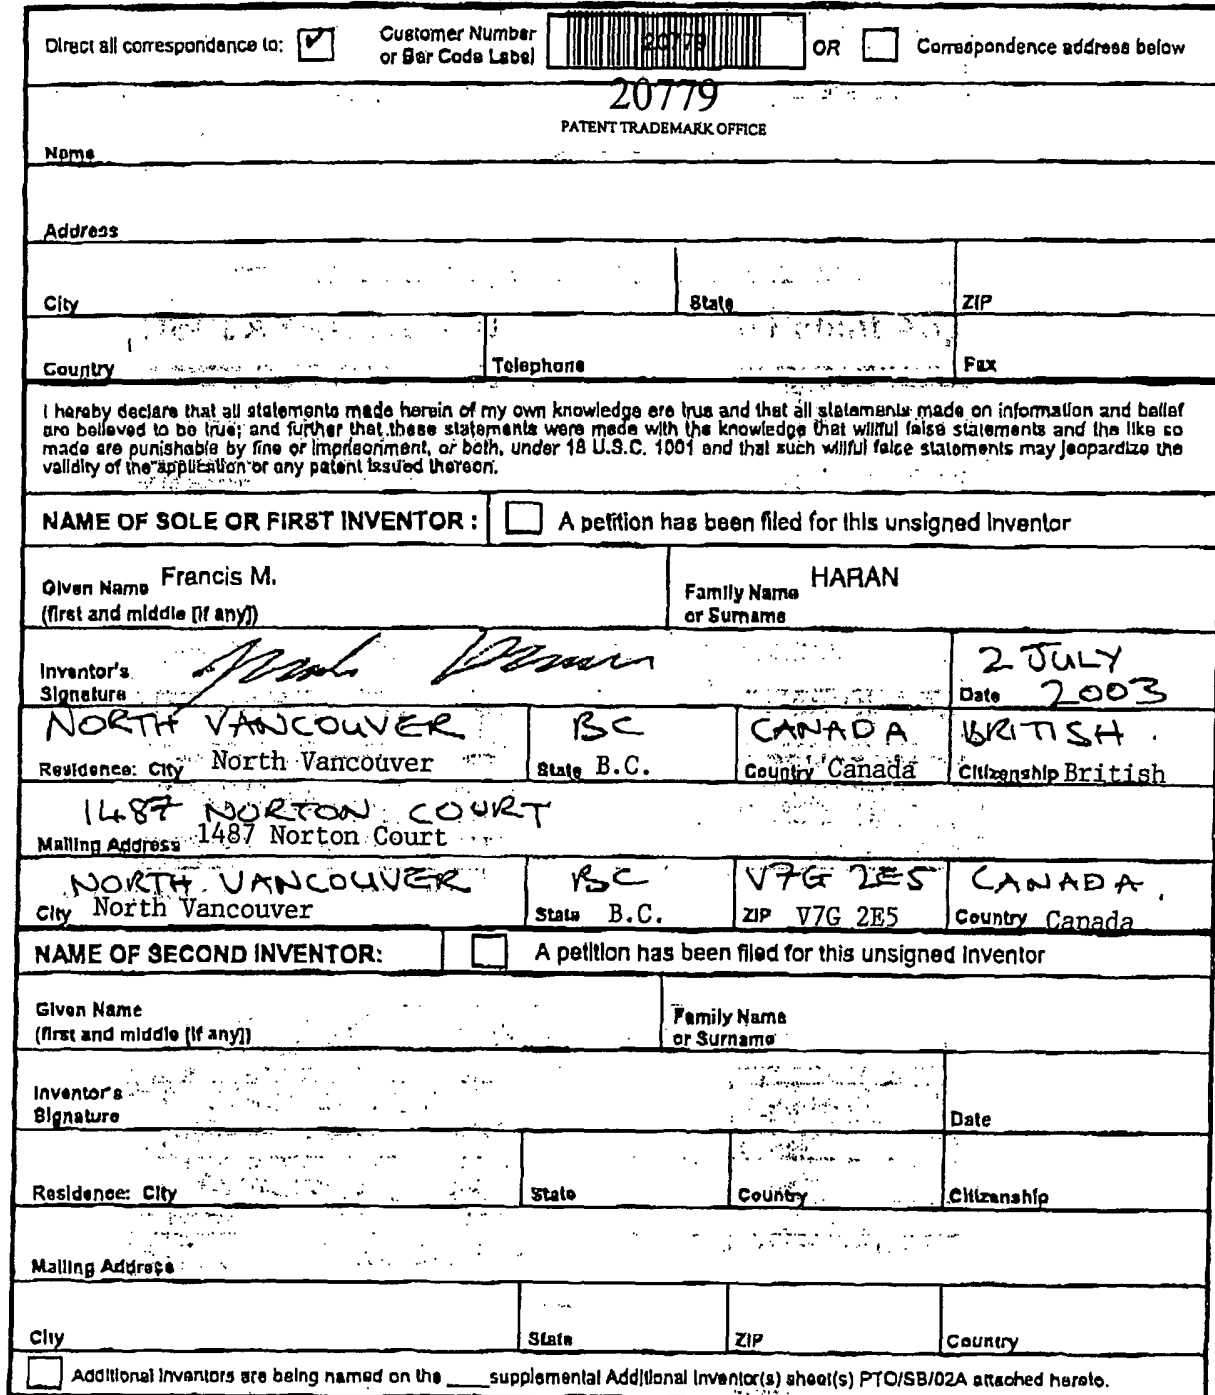 Direct all correspondence to: ✓ Customer Number or Bar Code Label 20779 OR Correspondence address below
20779
PATENT TRADEMARK OFFICE
Name
Address
City State ZIP
Country Telephone Fax
I hereby declare that all statements made herein of my own knowledge are true and that all statements made on information and belief
are believed to be true; and further that these statements were made with the knowledge that willful false statements and the like so
made are punishable by fine or imprisonment, or both, under 18 U.S.C. 1001 and that such willful false statements may jeopardize the
validity of the application or any patent issued thereon.
NAME OF SOLE OR FIRST INVENTOR : A petition has been filed for this unsigned inventor
Given Name Francis M. Family Name HARAN
(first and middle [if any]) or Surname
Inventor's 2 JULY
Signature Date 2003
NORTH VANCOUVER BC CANADA BRITISH
Residence: City North Vancouver State B.C. Country Canada Citizenship British
1487 NORTON COURT
Mailing Address 1487 Norton Court
NORTH VANCOUVER BC V7G 2E5 CANADA
City North Vancouver State B.C. ZIP V7G 2E5 Country Canada
NAME OF SECOND INVENTOR: A petition has been filed for this unsigned inventor
Given Name Family Name
(first and middle [if any]) or Surname
Inventor's
Signature Date
Residence: City State Country Citizenship
Mailing Address
City State ZIP Country
Additional inventors are being named on the ____ supplemental Additional Inventor(s) sheet(s) PTO/SB/02A attached hereto.